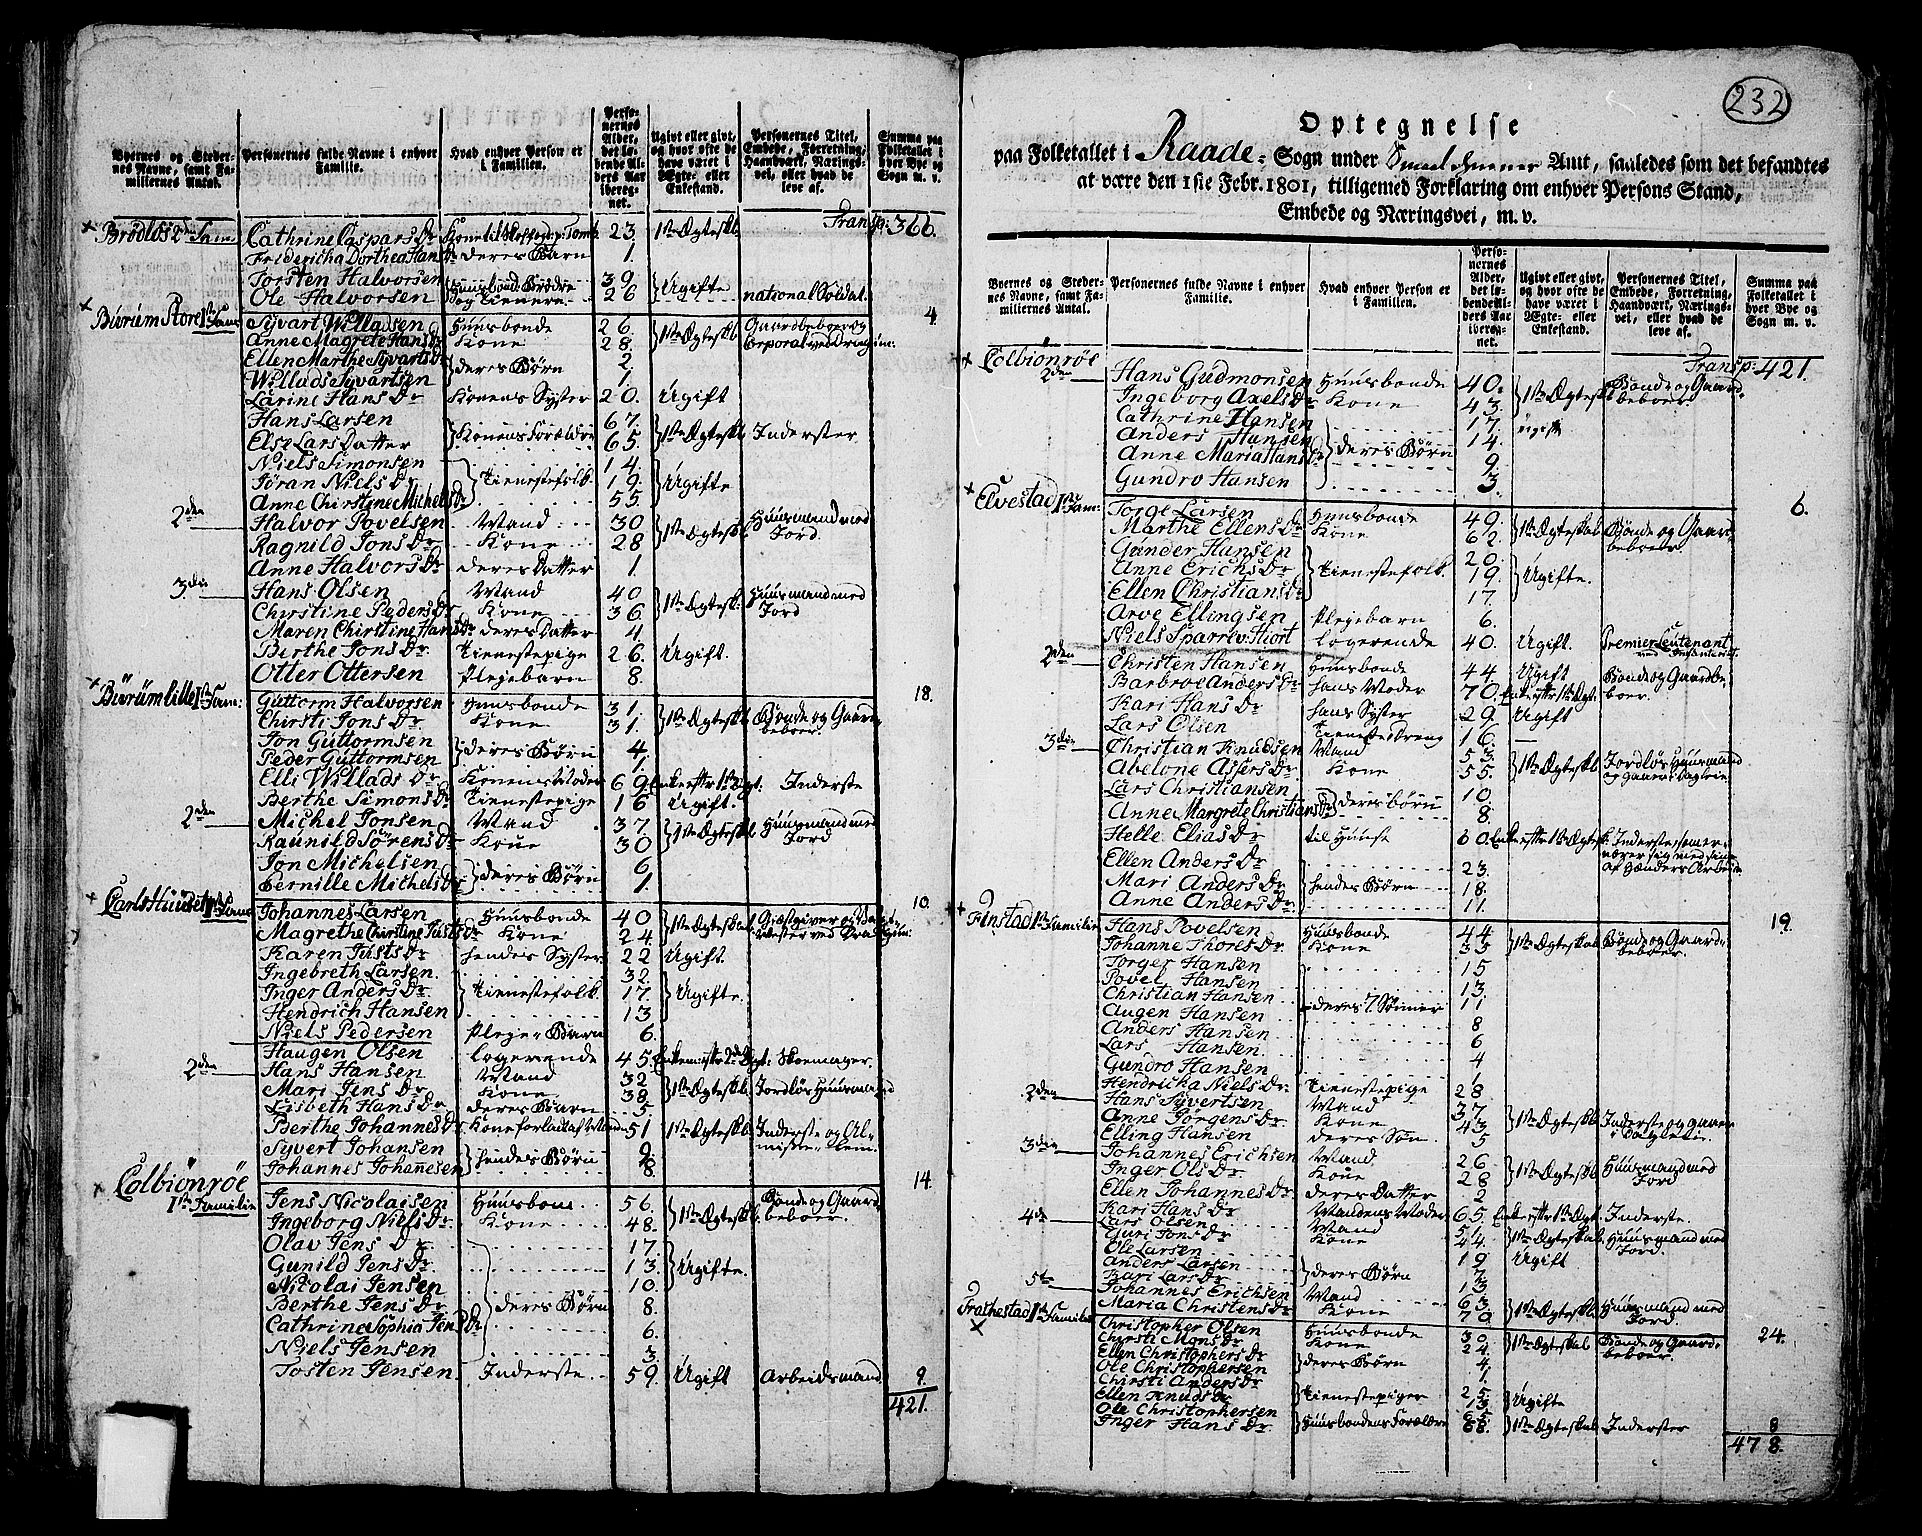 Byernes og Stedernes Navne, samt Familiernes Antal.
Personernes fulde Navne i enhver Familie.
Hvad enhver Person er i Familien.
Personernes Alder, det løbende Alders Aar iberegnet.
Ugivt eller givt, og hvor ofte de have været i Ægte- eller Enkestand.
Personernes Titel, Embede, Forretning, Haandværk, Næringsvei, eller hvad de leve af.
Summa paa Folketallet i hver Bye og Sogn m. v.
Transp: 366.
Brödlös 2den Fam. Cathrine Caspars Dr 23 1ste Ægteskb.
Fredericha Dorthea Hans Dr deres Barn 1.
Torsten Halvorsen 39 Ugifte
Ole Halvorsen 26 national Soldat
4.
Bürüm Store 1ste Fam: Syvart Willadsen Huusbonde 26. 1ste Ægteskb. Gaardbeboer og
Anne Magrete Hans Dr Kone 28
Ellen Marthe Syvarts Dr deres Börn 2
Willads Syvartsen 1.
Larine Hans Dr Konens Syster 20. Ugift
Hans Larsen Konens Forældre 67. 1ste Ægteskb. Inderster
Else Lars Datter 65.
Niels Simonsen Tienestefolk 14. Ugifte
Jöran Niels Dr 19.
Anne Chirstine Michels Dr 55.
2den Halvor Povelsen Mand 30 1ste Ægtesk. Huusmand med
Ragnild Jons Dr Kone 28 Jord
Anne Halvors Dr deres Datter 1.
3die Hans Olsen Mand 40 1ste Ægtesk: Huusmand med
Chirstine Peders Dr Kone 36 Jord
Maren Chirstine Hans Dr deres Datter 4.
Berthe Jons Dr Tienestepige 26. Ugift.
Otter Ottersen Plejebarn 8.
18.
Bürüm lille 1ste Fam: Guttorm Halvorsen Huusbonde 31. 1ste Ægteskb. Bonde og Gaard
Chirsti Jons Dr Kone 31. beboer.
Jon Guttormsen deres Börn 4
Peder Guttormsen 1.
Elli Willads Dr Konens Moder 69 Enke efter 1ste Ægt: Inderste
Berthe Simons Dr Tienestepige 16 Ugift.
2den Michel Jonsen Mand 37 1ste Ægteskb. Huusmand med
Raünild Sörens Dr Kone 30 Jord
Jon Michelsen deres Börn 6
Pernille Michels Dr 1.
10.
Carls Huuset 1ste Fam: Johannes Larsen Huusbonde 40 1ste Ægteskab. Giæstgiver og
Magrethe Chirstine Justs Dr Kone 24
Karen Justs Dr hendes Syster 22 Ugift.
Ingebreth Larsen. Tienestefolk 32. Ugifte.
Inger Anders Dr 17.
Hendrich Hansen 13
Niels Pedersen Pleje-Barn 6.
Haugen Olsen logerende 45. Skoemager.
2den Hans Hansen Mand 32 1ste Ægteskb. Jordlös Huusmand
Mari Jens Dr Kone 38
Lisbeth Hans Dr deres Barn 5
Berthe Johannes Dr Kone forladt af Manden 51 1ste Ægteskb. Inderste og Al-
Syvert Johansen hendes Börn 9 misse-Lem.
Johannes Johanesen 8
14.
Colbiönröe
1ste Familie Jens Nicolaisen Huusbond 56. 1ste Ægteskb. Bonde og Gaard
Ingeborg Niels Dr Kone 48. beboer.
Olav Jens Dr 17 Ugifte.
Gunild Jens Dr 13.
Nicolai Jensen deres Börn 10
Berthe Jens Dr 8.
Cathrine Sophia Jens Dr 6.
Niels Jensen 3.
Tosten Jensen Inderste 59. Ugift Arbeidsmand
9
421.
232
Optegnelse
paa Folketallet i Raade Sogn under Smaalehnenes Amt, saaledes som det befandtes
at være den 1ste Febr. 1801, tilligemed Forklaring om enhver Persons Stand,
Embede og Næringsvei, m. v.
Byernes og Stedernes Navne, samt Familiernes Antal.
Personernes fulde Navne i enhver Familie.
Hvad enhver Person er i Familien.
Personernes Alder, det løbende Alders Aar iberegnet.
Ugivt eller givt, og hvor ofte de have været i Ægte- eller Enkestand.
Personernes Titel, Embede, Forretning, Haandværk, Næringsvei, eller hvad de leve af.
Summa paa Folketallet i hver Bye og Sogn m. v.
Transp: 421.
Colbiönröe
2den Hans Gudmonsen Huusbonde 40. 1ste Ægteskb Bonde og Gaard-
Ingeborg Axels Dr Kone 43. beboer.
Cathrine Hansen deres Börn 17. ugift
Anders Hansen 14.
Anne Maria Hans Dr 9
Gundro Hansen 3.
6.
Elvestad 1ste Fam: Torge Larsen Huusbonde 49. 1ste Ægteskab Bonde og Gaard
Marthe Ellens Dr Kone 62. beboer.
Gunder Hansen Tienestefolk. 20. Ugifte.
Anne Erichs Dr 19.
Ellen Christians Dr 17.
Arve Ellingsen Plejebarn 6.
Niels Sparre v: Hiort logerende 40. Ugift. Premier Leutenant
2den Christen Hansen Huusbonde 44. Ugift Bonde og Gaardbe-
Barbroe Anders Dr hans Moder 70. Enke eftr 1ste Ægt: boer.
Kari Hans Dr hans Syster 29. Ugift
Lars Olsen Tienestedreng 16.
3die Christian Knudsen Mand 53. 1ste Ægteskb Jordlös Huusmand
Abelone Assers Dr Kone 55.
Lars Christiansen deres Börn 10
Anne Margrete Christians Dr 8.
Helle Elias Dr til Huuse 60. Enke eftr 1ste Ægtesk: Inderste som er-
Ellen Anders Dr hendes Börn 23. nærer sig med sine
Mari Anders Dr 18. Hænders Arbeide
Anne Anders Dr 11.
19.
Finstad 1ste Familie Hans Povelsen Huusbonde 44 1ste Ægteskab. Bonde og Gaard-
Johanne Thores Dr Kone 35 beboer.
Torger Hansen deres 7 Sönner 15
Povel Hansen 13.
Christian Hansen 11
Augen Hansen 8
Anders Hansen 6
Lars Hansen 4
Gundro Hansen 1.
Hendricha Niels Dr Tienestepige 28
2den Hans Syvertsen Mand 37. 1ste Ægteskb Inderste og gaaer
Anne Jörgens Dr Kone 43 i Dagleie.
Elling Hansen deres Sön 5
3die Johannes Erichsen Mand 26 1ste Ægteskb Huusmand med
Inger Ols Dr Kone 28 Jord
Ellen Johannes Dr deres Datter 2
Kari Hans Dr Mandens Moder 65. Enke eftr 1ste Ægt: Inderste.
4de Lars Olsen Mand 1ste Ægteskab. Huusmand med
Guri Jons Dr Kone 44. Jord.
Ole Larsen deres Börn 19 Ugift
Anders Larsen
Kari Lars Dr 13
5te Johannes Erichsen Mand 63. 1ste Ægteskb. Huusmand med
Maria Christens Dr Kone 70. Jord.
24.
Frathestad 1ste Familie Christopher Olsen Huusbonde 30. 1ste Ægteskab Bonde og Gaard-
Chirsti Mons Dr Kone 24. beboer.
Ellen Christophers Dr deres Börn 4.
Ole Christophersen 1.
Chirsti Anders Dr Tienestepiger 25 Ugifte
Ellen Knuds Dr 13
Ole Christophersen Huusbondens Forældre 1ste Ægteskab Inderster
Inger Hans Dr 68.
8
478.